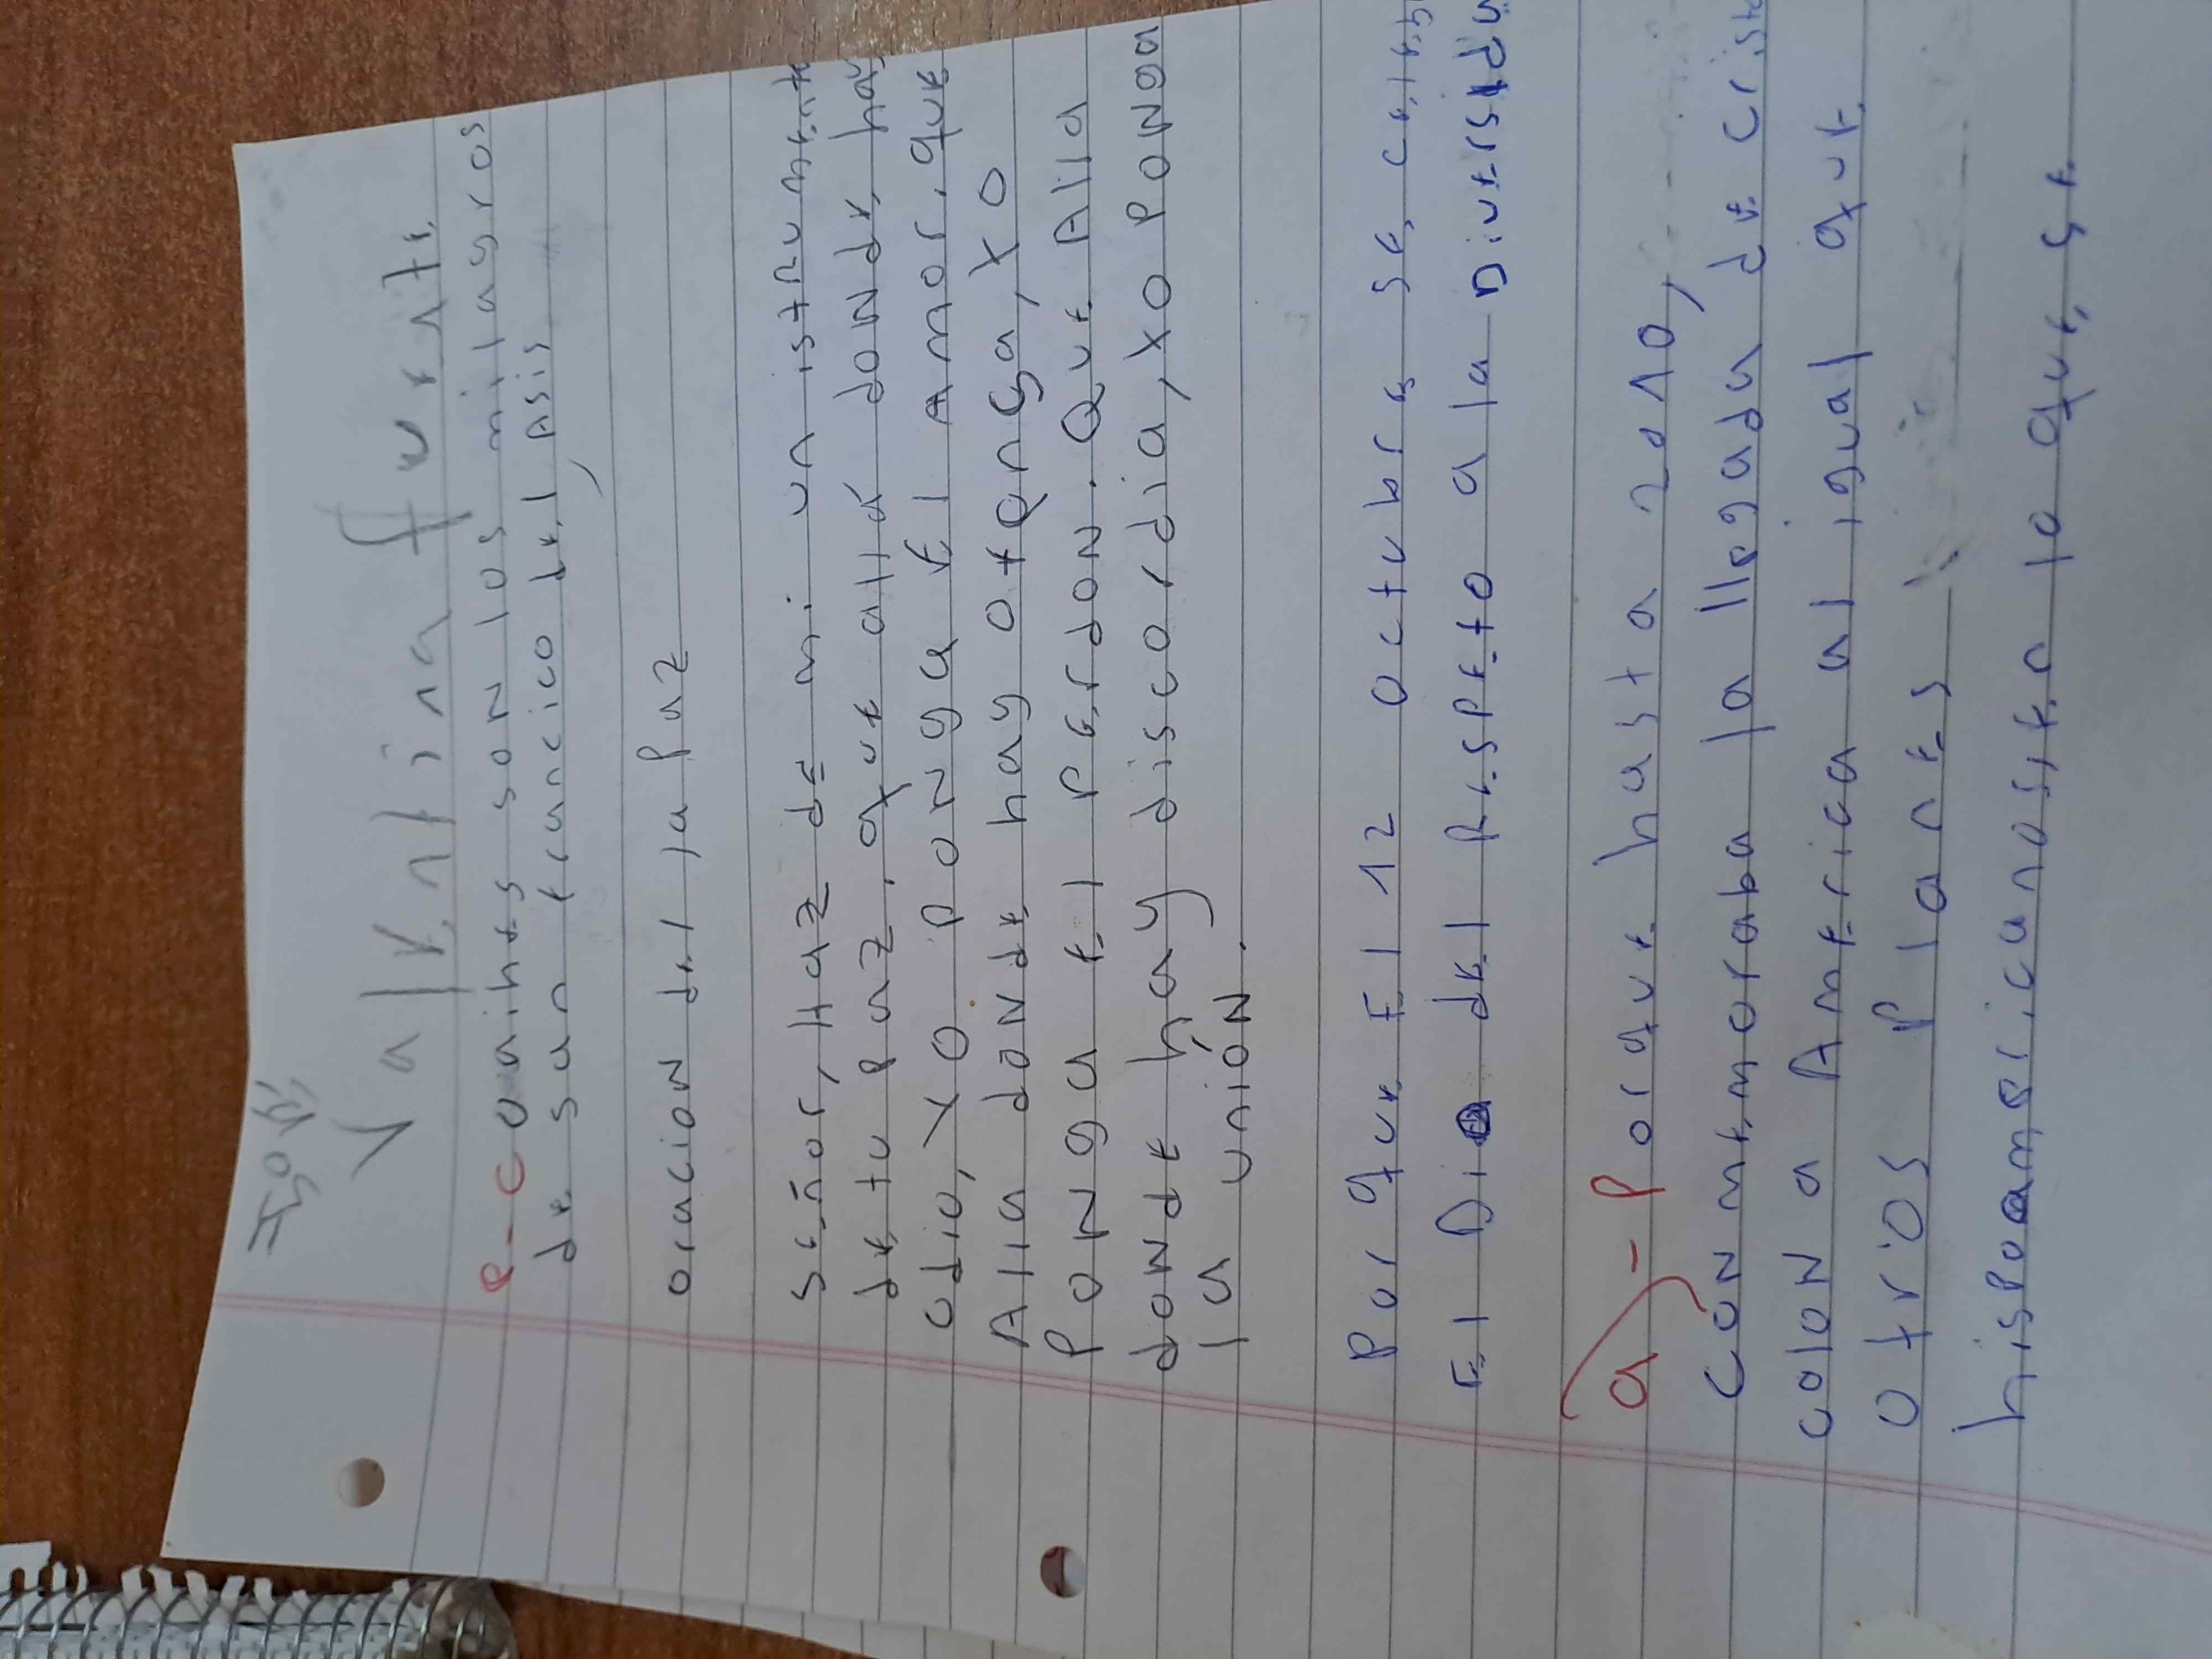 Valentina fuente
e-c oaihes son los milagros
de san francico del Asis
oracion del la paz
señor, Haz de mi un istrumento
de tu paz. que allá donde hay
odio, yo ponga El Amor. que
Alla donde hay ofenga, yo
Ponga el Perdon. Que Alla
donde hay discordia, yo Ponga
la unión.
Por que El 12 octubre se
El Dia del Respeto a la
a - Porque hasta 2010,
conmemoraba la llegada de
colon a America al igual que
otros Planes
hispoamericanos, en lo que, se